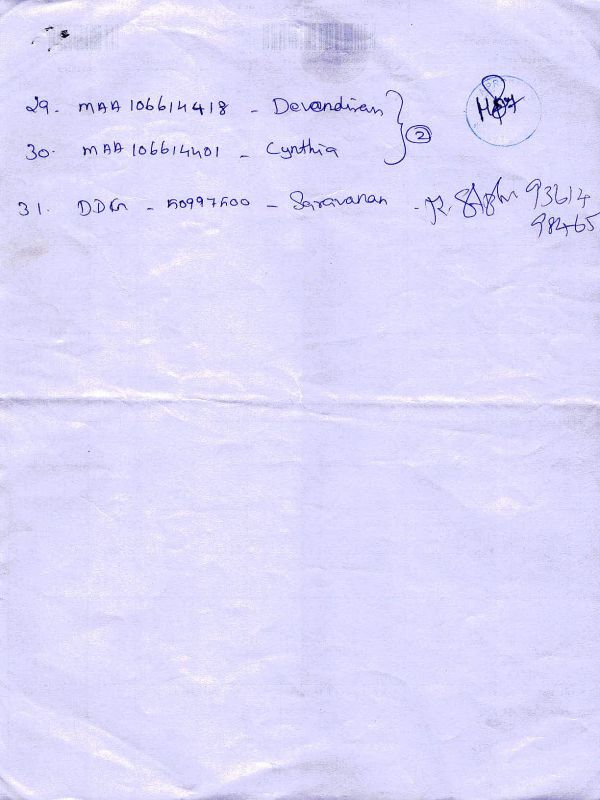 29. MAA 106614418 - Devandiran
30. MAA 106614401 - Cynthia
2
31. - 50997500 - Saravanan - R. 93614
98465